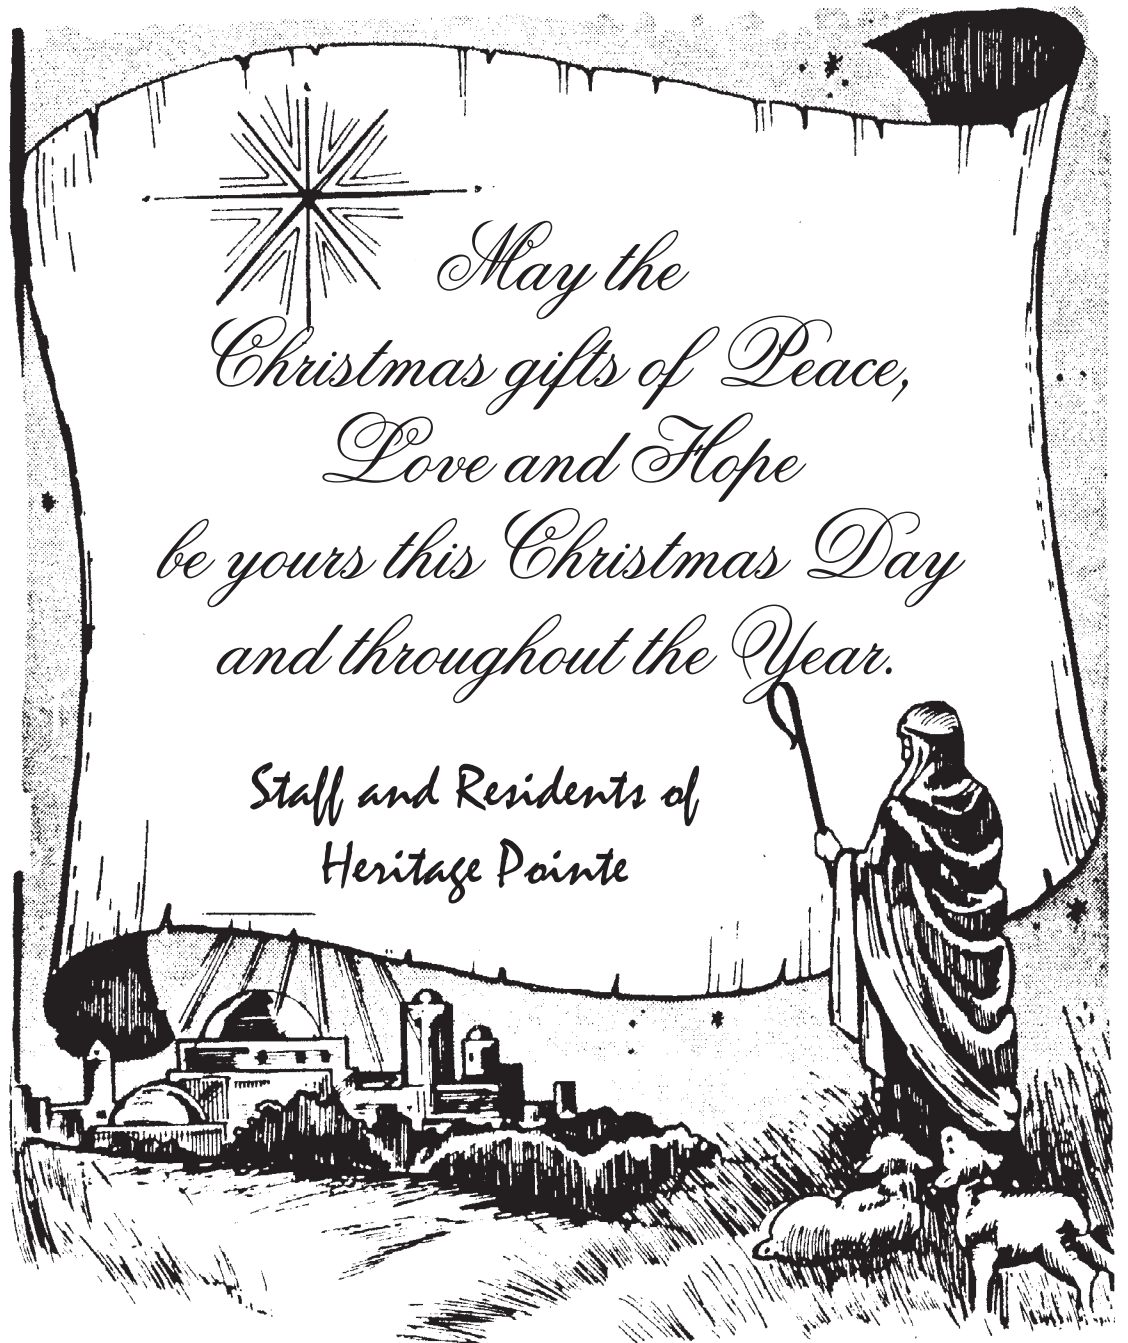 May the
Christmas gifts of Peace,
Love and Hope
be yours this Christmas Day
and throughout the Year.
Staff and Residents of
Heritage Pointe